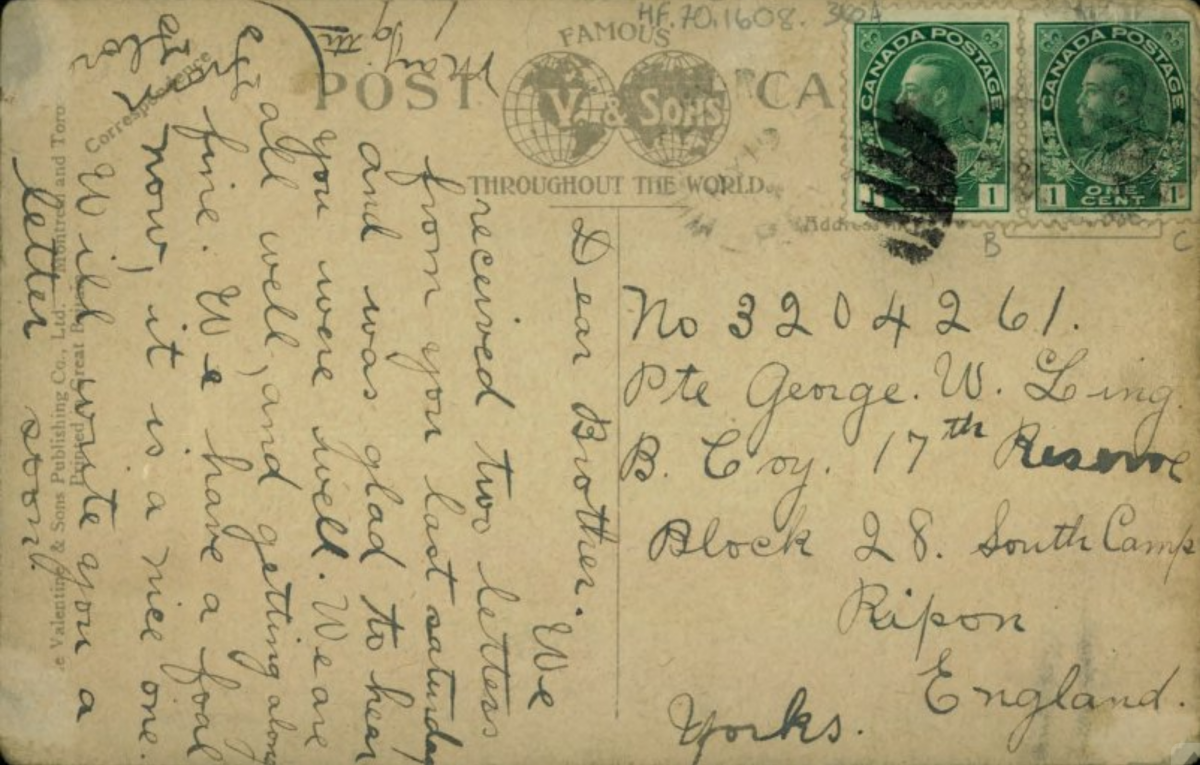 HF.70.1608. 360A
FAMOUS
POST CA
V. & SONS
THROUGHOUT THE WORLD.
CANADA POSTAGE
1 CENT 1
CANADA POSTAGE
1 ONE CENT 1
Correspondence
Address
B
C
Valentine & Sons Publishing Co., Ltd. Montreal and Toro
Printed Great
May 19th
Dear Brother. We
received two letters
from you last saturday
and was glad to hear
you were well. We are
all well, and getting along
fine. We have a foal
now, it is a nice one.
Will write you a
letter soon
No 3204261.
Pte George. W. Ling.
B. Coy. 17th Reserve
Block 28. South Camp
Ripon
England.
Yorks.